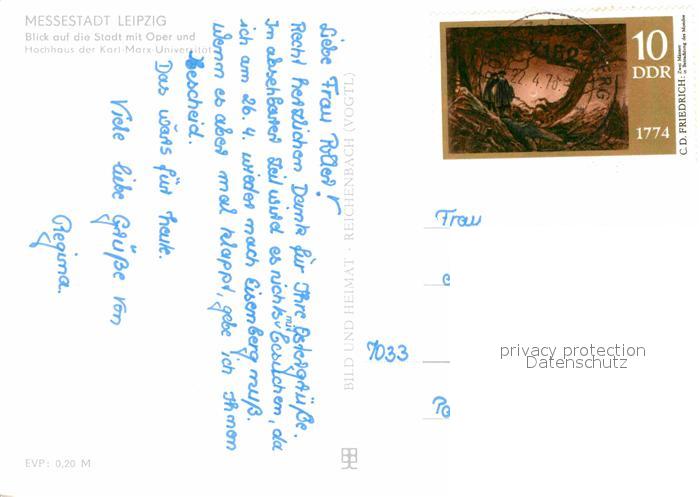 MESSESTADT LEIPZIG
Blick auf die Stadt mit Oper und
Hochhaus der Karl-Marx-Universität
Liebe Frau
Recht herzlichen Dank für Ihre Ostergrüße.
In absehbarer Zeit wird es nichts mit Besuchen, da
ich am 26. 4. wieder nach Eisenberg muß.
Wenn es aber mal klappt, gebe ich Ihnen
Bescheid.
Das wärs für heute.
Viele liebe Grüße von
Regina.
EVP: 0,20 M
BILD UND HEIMAT · REICHENBACH (VOGTL)
10
DDR
1774
C. D. FRIEDRICH: Zwei Männer
in Betrachtung des Mondes
22.4.76
Frau
7033
privacy protection
Datenschutz